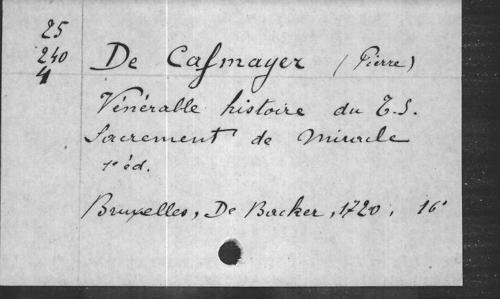 25
240
4
De Cafmayer (Pierre)
Vénérable histoire du T.S.
Sacrement de Miracle
1e éd.
Bruxelles, De Backer, 1720, 16°